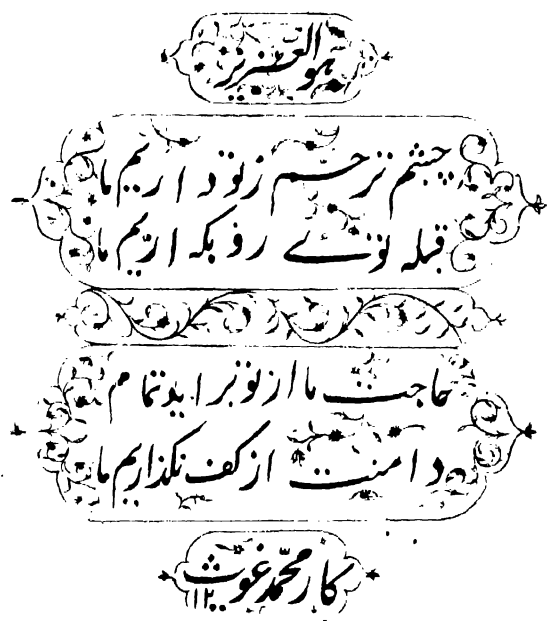 هو العزیز
چشم ترحّم ز تو داریم ما
قبله توئے رو بکه اریّم ما
حاجت ما از تو بر اید تمام
دامنت از کف نگذاریم ما
کار محمّد غوث
۱۲۰۰